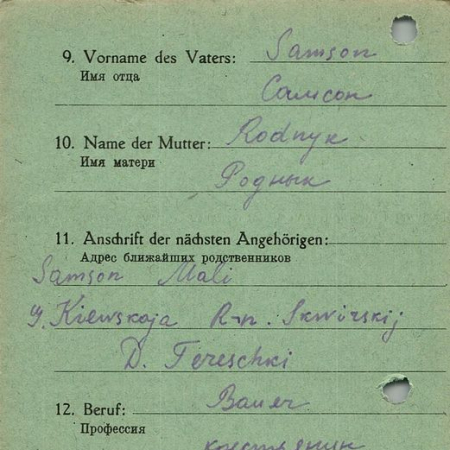 9. Vorname des Vaters: Samson
Имя отца
Самсон
10. Name der Mutter: Rodnyk
Имя матери
Роднык
11. Anschrift der nächsten Angehörigen:
Адрес ближайших родственников
Samson Mali
g. Kiewskaja R-n. Skwirskij
D. Tereschki
12. Beruf: Bauer
Профессия
крестьянин